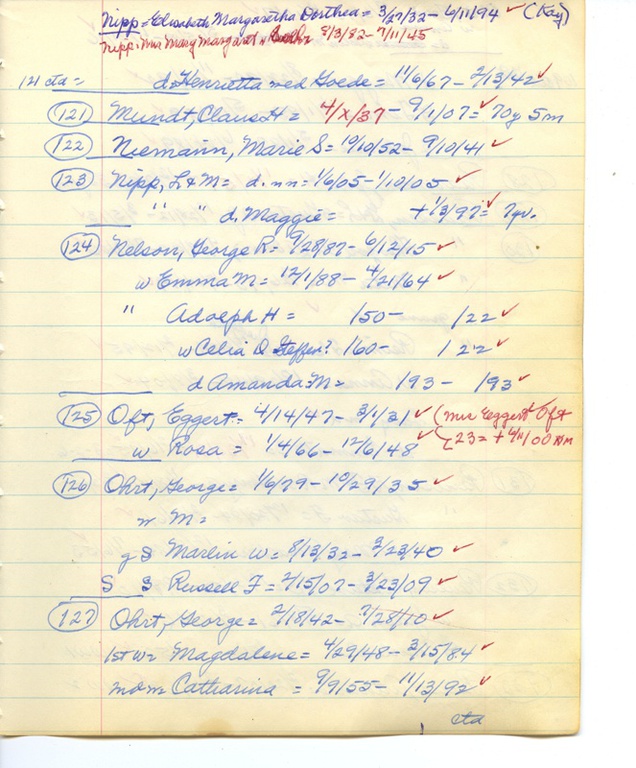 Nipp = Elisabeth Margaretha Dorthea = 3/27/32 - 6/11/94 ✓ (Kay)
Nipp: Mrs Mary Margaret 8/3/82 - 7/11/45
121 ctd = d. Henrietta wed Goede = 11/6/67 - 2/13/42 ✓
(121) Mundt, Claus H = 4/X/37 - 9/1/07 = ✓ 70y 5m
(122) Niemann, Marie S = 10/10/52 - 9/10/41 ✓
(123) Nipp, L & M = d. nn = 1/6/05 - 1/10/05 ✓
" " d. Maggie = + 1/3/97 = ✓ 7yr.
(124) Nelson, George R = 9/28/87 - 6/12/15 ✓
w Emma M = 12/1/88 - 4/21/64 ✓
" Adolph H = 150 - 122 ✓
w Celia D Steffen? 160 - 122 ✓
d Amanda M = 193 - 193 ✓
(125) Oft, Eggert = 4/14/47 - 3/1/31 ✓ (Mrs Eggert Oft
w Rosa = 1/4/66 - 12/6/48 ✓
(126) Ohrt, George = 1/6/79 - 10/29/35 ✓
w M =
gS Marlin W = 8/13/32 - 3/23/40 ✓
S S Russell F = 2/15/07 - 3/23/09 ✓
(127) Ohrt, George = 2/18/42 - 7/28/10 ✓
1st w = Magdalene = 4/29/48 - 3/15/84 ✓
Catharina = 9/9/55 - 11/13/92 ✓
ctd